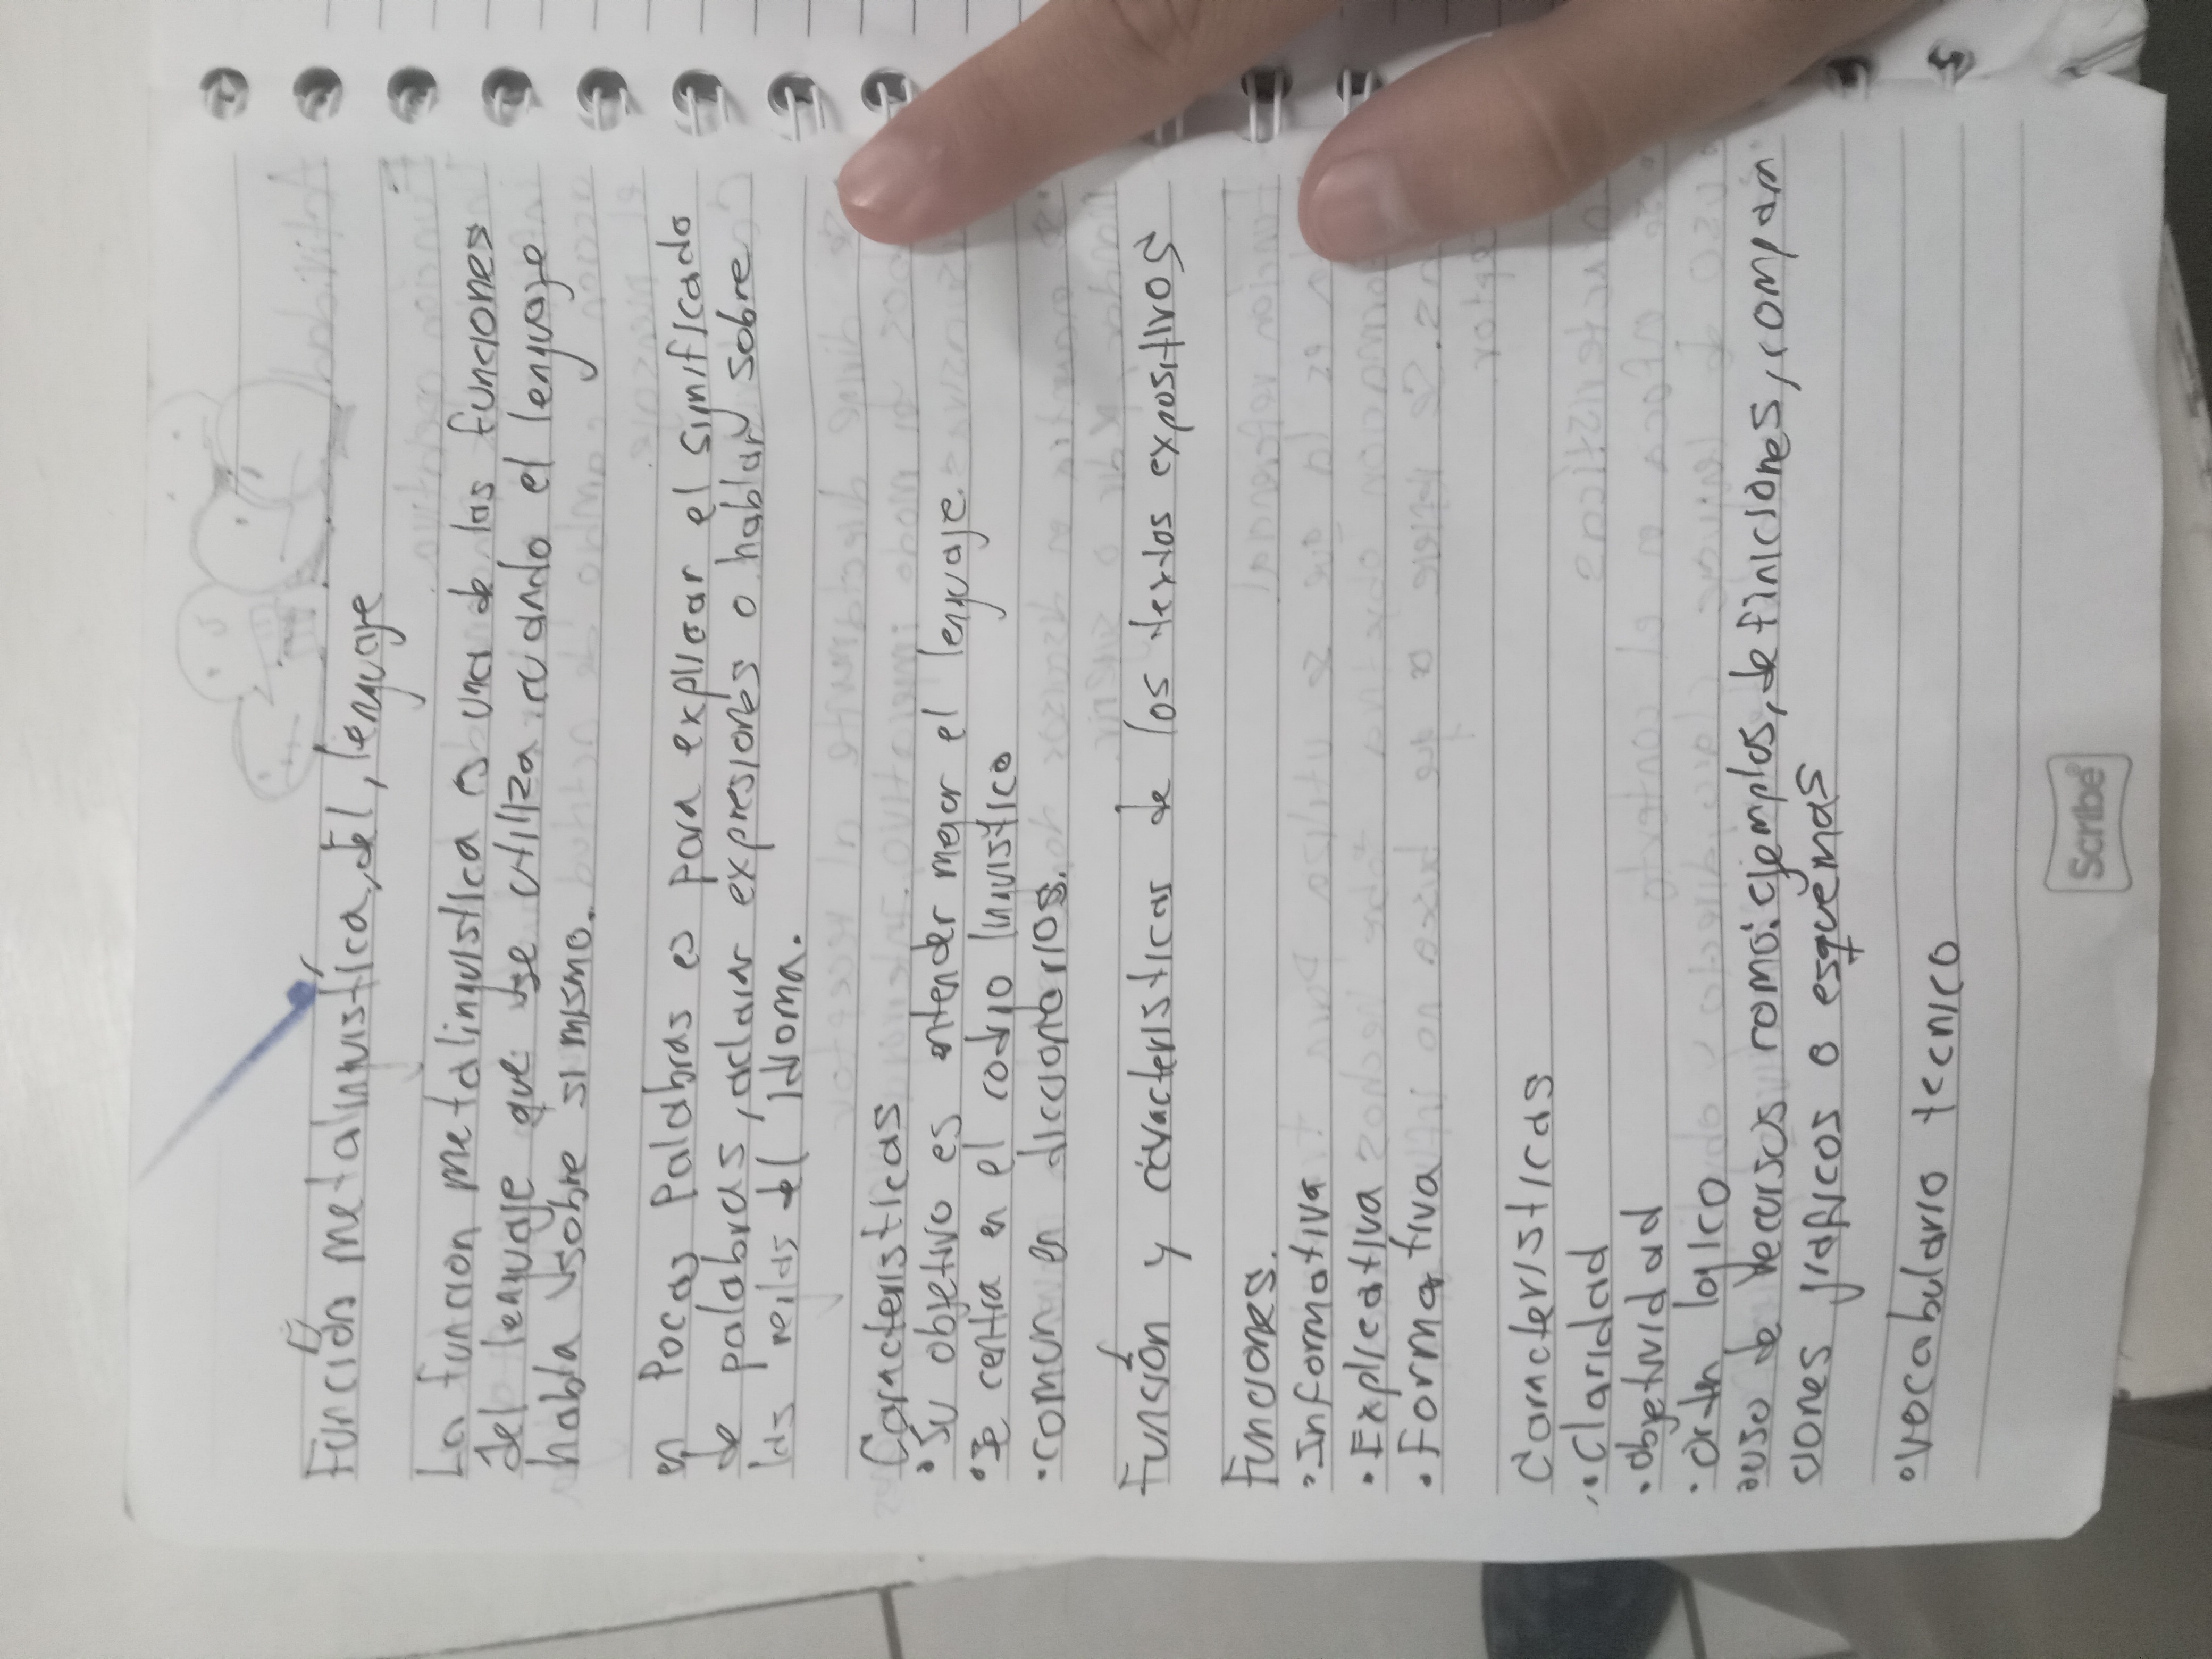 Función metalinguística, del, lenguaje
La funcion metalinguistica es una de las funciones
del lenguaje que se utiliza cuando el lenguaje
habla sobre si mismo.
en Pocas Palabras es para explicar el significado
de palabras, aclarar expresiones o hablar sobre
las reglas del idioma.
Caracteristicas
• Su objetivo es entender mejor el lenguaje.
• se centra en el codigo linguistico
• comun en diccionarios.
Funsión y caracteristicas de los textos expositivos
Funciones.
• Informativa
• Explicativa
• Formativa
Caracteristicas
• Claridad
• objetividad
• orden logico
• uso de recursos como: ejemplos, definiciones, compara
ciones graficos o esquemas
• vocabulario tecnico
Scribe®